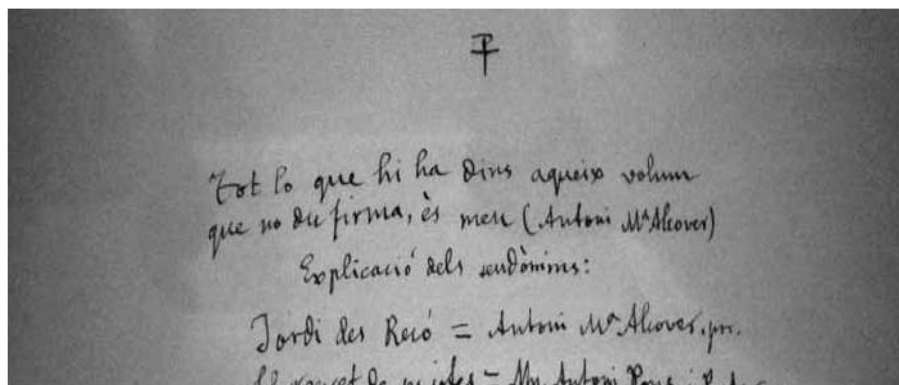 Tot lo que hi ha dins aqueix volum
que no du firma, és meu (Antoni Mª Alcover)
Explicació dels seudònims:
Jordi des Recó = Antoni Mª Alcover, pre.
= Mn. Antoni Pons i